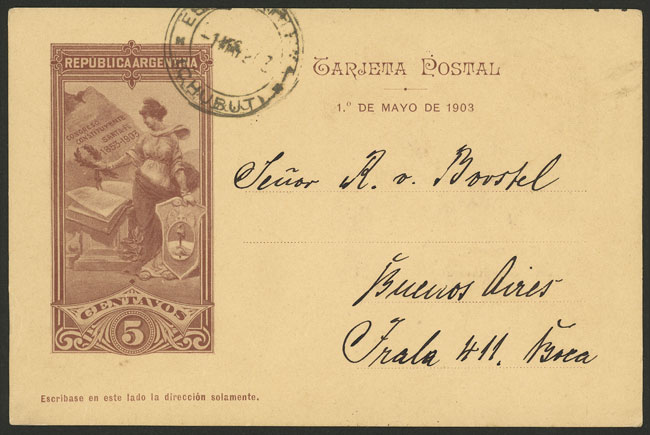 REPUBLICA ARGENTINA
CONGRESO
CONSTITUYENTE
SANTA FE
1853-1903
CENTAVOS
5
(CHUBUT)
TARJETA POSTAL
1.º DE MAYO DE 1903
Señor R. v. Boostel
Buenos Aires
Irala 411. Boca
Escríbase en este lado la dirección solamente.